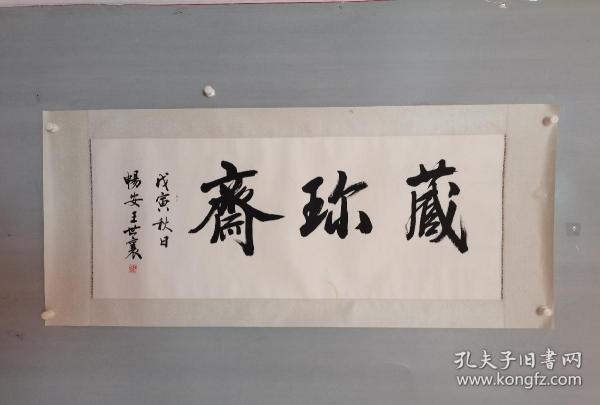 藏珎齋
戊寅秋日
暢安王世襄
孔夫子旧书网
www.kongfz.com